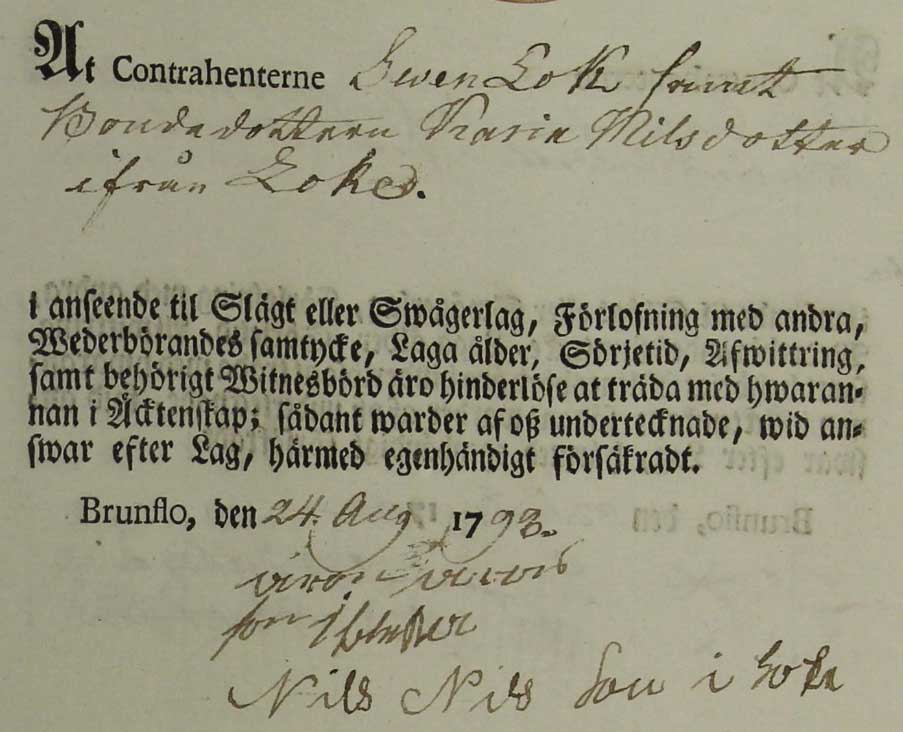 At Contrahenterne Swen Lok samt
Bondedottern Karin Nilsdotter
ifrån Loke.
i anseende til Slägt eller Swågerlag, Förlofning med andra,
Wederbörandes samtycke, Laga ålder, Sörjetid, Afwittring,
samt behörigt Witnesbörd äro hinderlöse at träda med hwaran-
nan i Äcktenskap; sådant warder af oß undertecknade, wid an-
swar efter Lag, härmed egenhändigt försäkradt.
Brunflo, den 24. Aug 1793.
son
Nils Nils Son i Loke